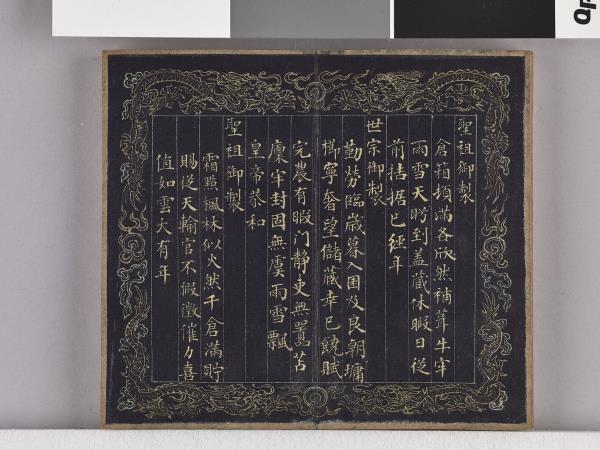 聖祖御製
倉箱頓滿各欣然補葺牛牢
雨雪天時到蓋藏休暇日從
前拮据已經年
世宗御製
勤勞臨歲暮入囷及良朝墉
櫛寧奢望儲蔵幸已饒賦
完農有暇門靜吏無囂苫
廩牢封固無虞雨雪飄
皇帝恭和
聖祖御製
霜點楓林似火然千倉滿貯
賜從天輸官不假徵催力喜
值如雲大有年